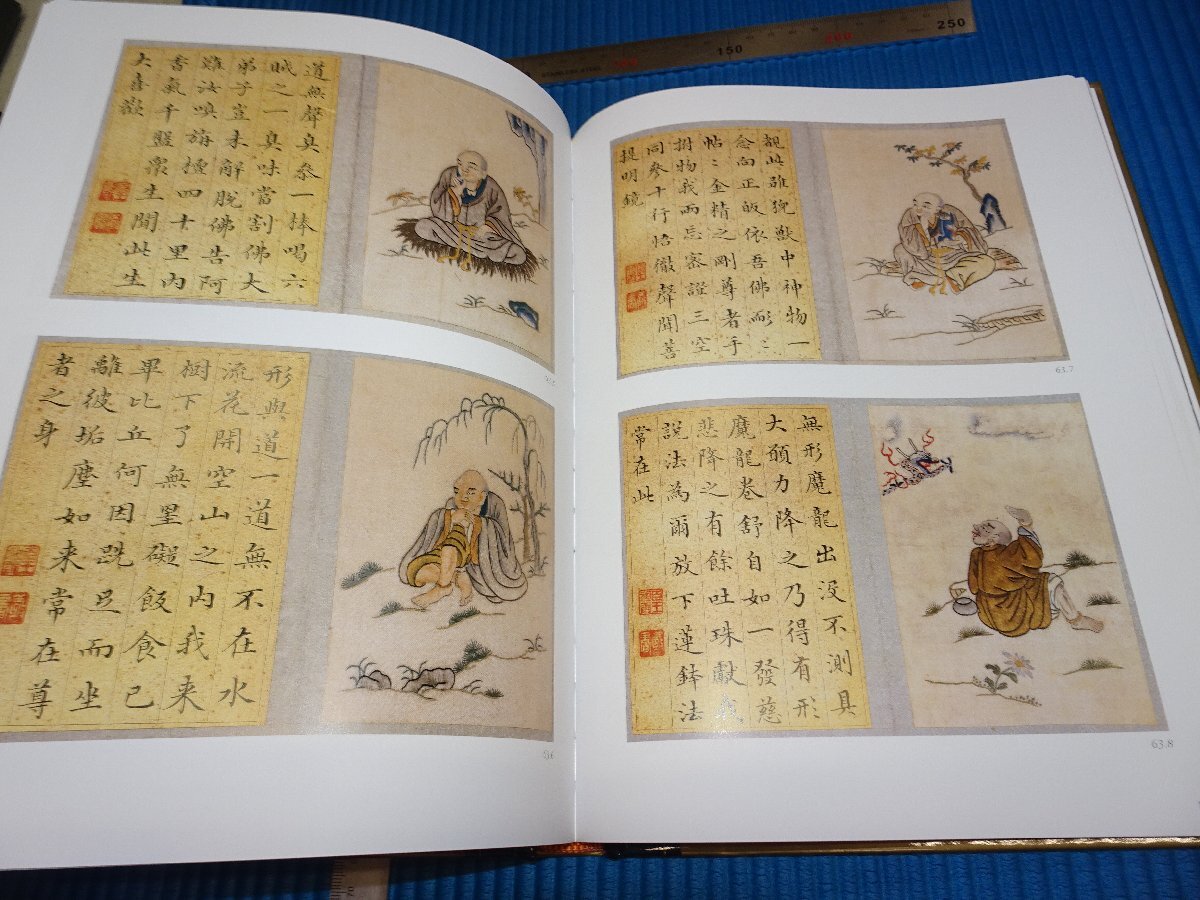 道無聲真叅一棒喝六
賊之一真味當割佛大
弟子豈未解脫佛告阿
難汝嗅旃檀四十里內
香氣千盤眾生聞此生
大喜歡
形與道一道無不在水
流花開空山之內我来
樹下了無罣礙飯食已
畢比丘何因跣足而坐
離彼垢塵如来常在尊
者之身
63.6
觀此雖猊獸中神物一
念向正皈依吾佛彪彡
帖彡金精之剛尊者手
捫物我兩忘密證三空
同參十行悟徹聲聞善
提明鏡
63.7
無形魔龍出没不測具
大願力降之乃得有形
魔龍卷舒自如一發慈
悲降之有餘吐珠獻
說法為爾放下蓮鉢法
常在此
63.8
150
200
250